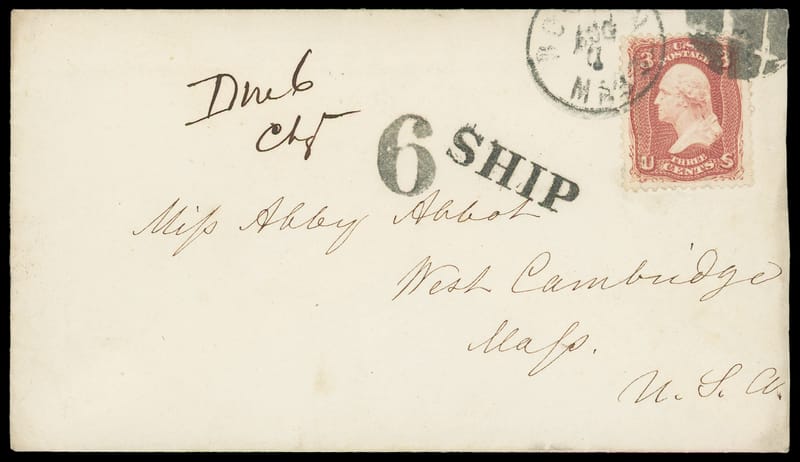 Due 6
Chg
6
SHIP
BOSTON
AUG
MASS
U.S.
POSTAGE
3 3
THREE
CENTS
U S
Miſs Abby Abbot
West Cambridge
Maſs.
U. S. A.